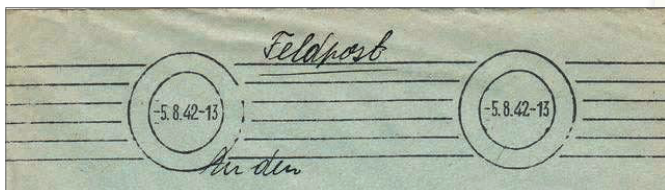 Feldpost
-5.8.42-13 -5.8.42-13
An den